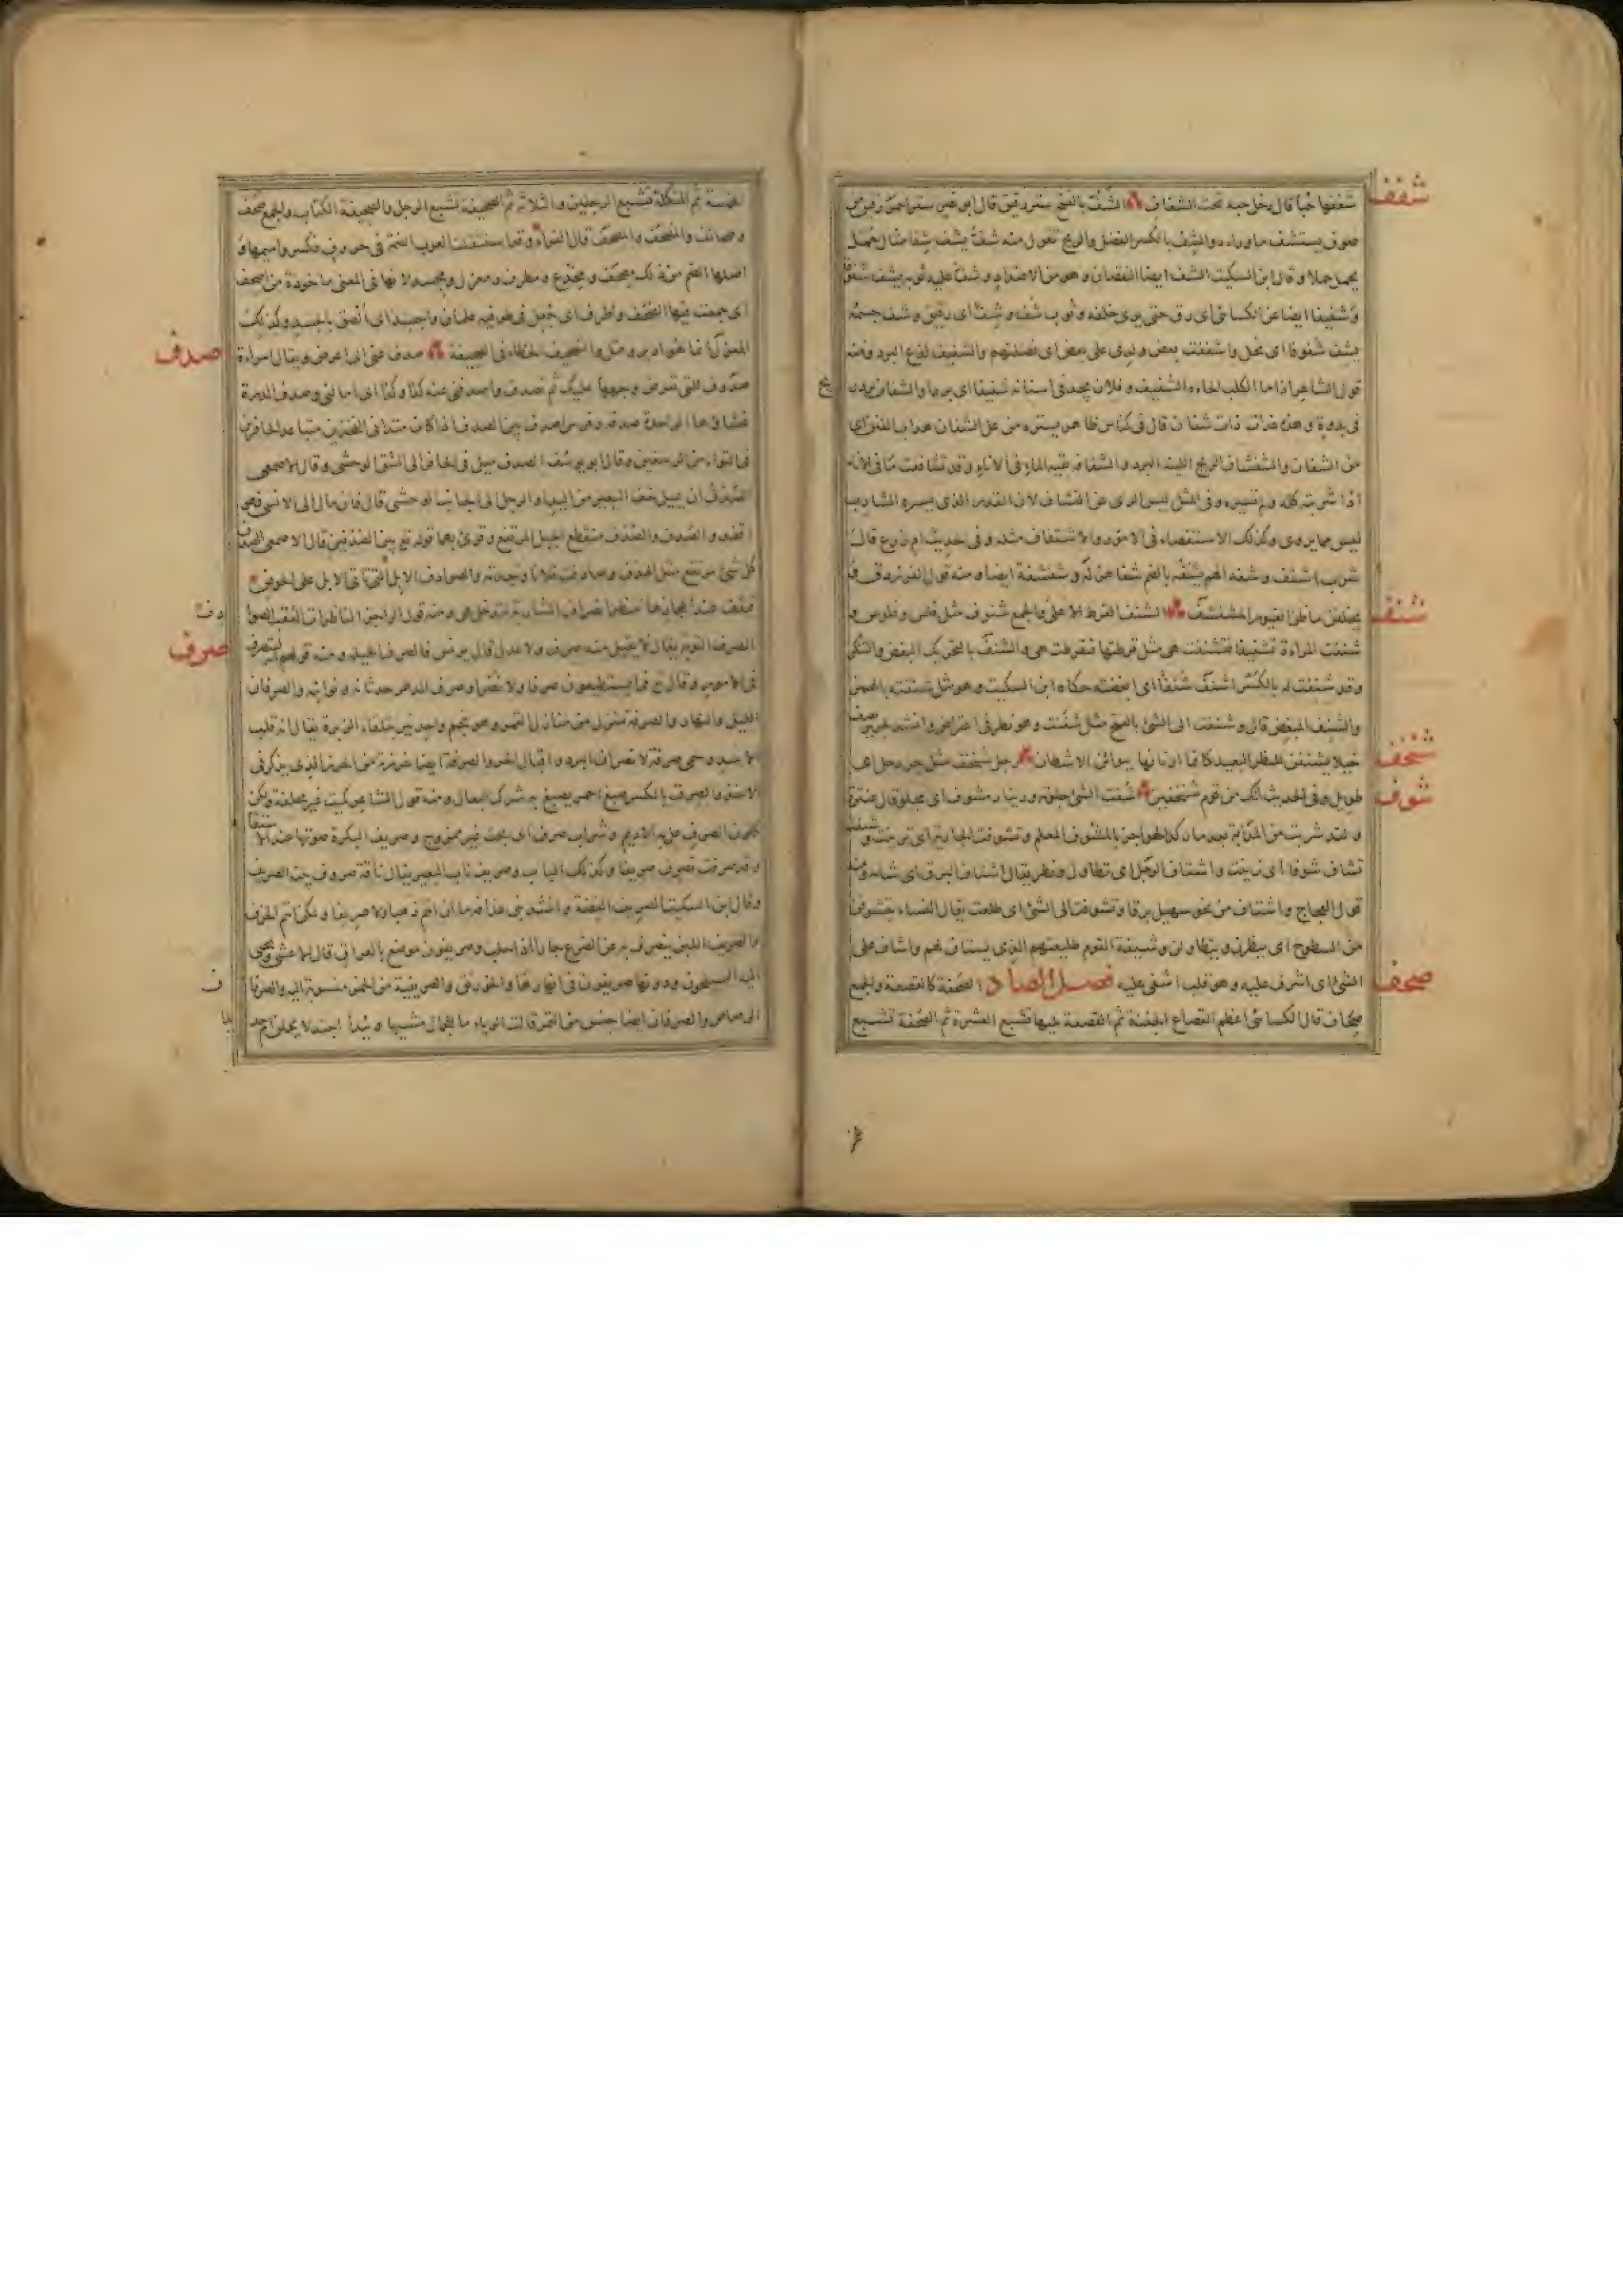 شغفها حبا قال دخل حبه تحت الشغاف الشف بالفتح ستر رقيق قال ابو نصر ستر احمر رقيق من
صوف يستشف ما وراءه والشف بالكسر الفضل والربح تقول منه شف يشف شفا مثال حمل
يحمل حملا وقال ابن السكيت الشف ايضا النقصان وهو من الاضداد وشف عليه ثوبه يشف شفوفا
وشفيفا ايضا عن الكسائي اى رق حتى يرى خلفه وثوب شف وشف اى رقيق وشف جسمه
يشف شفوفا اى نحل واشففت بعض ولدى على بعض اى فضلتهم والشفيف لذع البرد ومنه
قول الشاعر اذا ما الكلب الجاه الشفيف وفلان يجد فى اسنانه شفيفا اى بردا والشفان برد ريح
فى ندوة وهذه غداة ذات شفان قال فى كناس ظاهر يستره من عل الشفان هداب الفنن اى
من الشفان والشفشاف الريح اللينة البرد والشفافة بقية الماء فى الاناء وقد تشاففت ما فى الاناء
اذا شربته كله ولم تسئره وفى المثل ليس الرى عن التشاف لان القدر الذى يسئره الشارب
ليس مما يروى وكذلك الاستقصاء فى الامور والاشتفاف مثله وفى حديث ام زرع قالت
شرب اشتف وشفه الهم يشفه بالضم شفا هزله وشفشفة ايضا ومنه قول الفرزدق
شنف الشنف القرط الاعلى والجمع شنوف مثل فلس وفلوس و
شنفت المراة تشنيفا فتشنفت هى مثل قرطتها فتقرطت هى والشنف بالتحريك البغض والتنكر
وقد شنفت له بالكسر اشنف شنفا اى ابغضته حكاه ابن السكيت وهو مثل شئفته بالهمز
والشنف المبغض قال وشنفت الى الشئ بالفتح مثل شفنت وهو نظر فى اعتراض وانشد لجرير يصف
خيلا يشنفن للنظر البعيد كانما ارنانها ببوائن الاشطان شنخف رجل شنخف مثل جردحل اى
طويل وفى الحديث انك من قوم شنخفين شوف شفت الشئ جلوته ودينار مشوف اى مجلو قال عنترة
ولقد شربت من المدامة بعد ما ركد الهواجر بالمشوف المعلم وتشوفت الجارية اى تزينت وشيفت
تشاف شوفا اى زينت واشتاف الرجل اى تطاول ونظر يقال اشتاف البرق اى شامه ومنه
قول العجاج واشتاف من نحو سهيل برقا وتشوفت الى الشئ اى طلعت يقال النساء يتشوفن
من السطوح اى ينظرن ويتطاولن وشيفة القوم طليعتهم الذى يشتاف لهم واشاف على
الشئ اى اشرف عليه وهو قلب اشفى عليه فصل الصاد صحف الصحفة كالقصعة والجمع
صحاف قال الكسائى اعظم القصاع الجفنة ثم القصعة تليها تشبع العشرة ثم الصحفة تشبع
الخمسة ثم المئكلة تشبع الرجلين والثلاثة ثم الصحيفة تشبع الرجل والصحيفة الكتاب والجمع صحف
وصحائف والمصحف والمصحف قال الفراء وقد استثقلت العرب الضمة فى حروف فكسروا ميمها و
اصلها الضم من ذلك مصحف ومخدع ومطرف ومغزل ومجسد لانها فى المعنى ماخوذة من اصحف
اى جمعت فيها الصحف واطرف اى جعل فى طرفيه علمان واجسد اى الصق بالجسد وكذلك
المغزل انما هو ادير وفتل والتصحيف الخطاء فى الصحيفة صدف صدف عنى اى اعرض ويقال امراة
صدوف للتى تعرض وجهها عليك ثم تصدف واصدفنى عنه كذا وكذا اى امالنى وصدف الدرة
غشاؤها الواحدة صدفة وفرس اصدف بين الصدف اذا كان متدانى الفخذين متباعد الحافرين
فى التواء من الرسغين وقال ابو يوسف الصدف ميل فى الحافر الى الشق الوحشى وقال الاصمعى
الصدف ان يميل خف البعير من اليد او الرجل الى الجانب الوحشى قال فان مال الى الانسى فهو
اقفد والصدف والصدف منقطع الجبل المرتفع وقرئ بهما قوله تع بين الصدفين قال الاصمعى الصدف
كل شئ مرتفع مثل الهدف وصادفت فلانا وجدته والصوادف الابل التى تاتى الابل على الحوض
فتقف عند اعجازها تنتظر انصراف الشاربة لتدخل هى ومنه قول الراجز الناظرات العقب الصوادف
صرف الصرف التوبة يقال لا يقبل منه صرف ولا عدل قال يونس فالصرف الحيلة ومنه قولهم انه ليتصرف
فى الامور وقال تع فما يستطيعون صرفا ولا نصرا وصرف الدهر حدثانه ونوائبه والصرفان
الليل والنهار والصرفة منزل من منازل القمر وهو نجم واحد نير بتلقاء الزبرة يقال انه قلب
الاسد وسمى صرفة لانصراف البرد واقبال الحر والصرفة ايضا خرزة من الخرز الذى يذكر فى
الاخذ والصرف بالكسر صبغ احمر يصبغ به شرك النعال ومنه قول الشاعر كميت غير محلفة ولكن
كلون الصرف عل به الاديم وشراب صرف اى بحت غير ممزوج وصريف البكرة صوتها عند الاستقاء
وقد صرفت تصرف صريفا وكذلك الباب وصريف ناب البعير يقال ناقة صروف بينة الصريف
وقال ابن السكيت الصريف الفضة وانشد بنى غدانة ما ان انتم ذهبا ولا صريفا ولكن انتم الخزف
والصريف اللبن ينصرف به عن الضرع حارا اذا حلب وصريفون موضع بالعراق قال الاعشى وتجبى
اليه السيلحون ودونها صريفون فى انهارها والخورنق والصريفية من الخمر منسوبة اليه والصرفان
الرصاص والصرفان ايضا جنس من التمر قالت الزباء ما للجمال مشيها وئيدا اجندلا يحملن ام حديدا